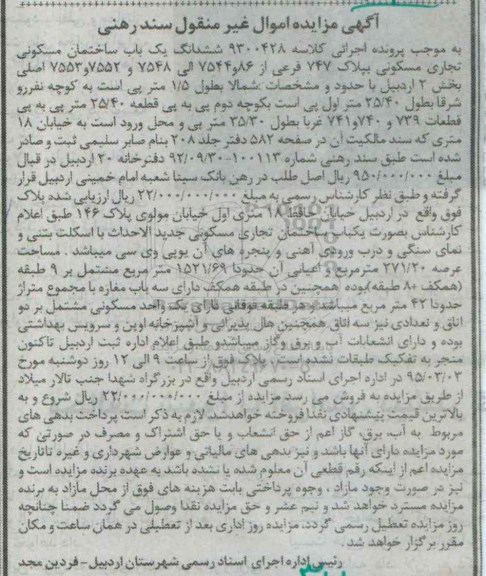 آگهی مزایده اموال غیر منقول سند رهنی
به موجب پرونده اجرائی کلاسه ۹۳۰۰۴۲۸ ششدانگ یک باب ساختمان مسکونی
تجاری مسکونی بپلاک ۷۴۷ فرعی از ۸۶و۷۵۴۴ الی ۷۵۴۸ و ۷۵۵۲و۷۵۵۳ اصلی
بخش ۲ اردبیل با حدود و مشخصات :شمالا بطول ۱/۵ متر پی است به کوچه نفررو
شرقا بطول ۲۵/۴۰ متر اول پی است بکوچه دوم پی به پی قطعه ۲۵/۴۰ متر پی به پی
قطعات ۷۳۹ و ۷۴۰و۷۴۱ غربا بطول ۳۵/۳۰ متر پی و محل ورود است به خیابان ۱۸
متری که سند مالکیت آن در صفحه ۵۸۲ دفتر جلد ۲۰۸ بنام صابر سلیمی ثبت و صادر
شده است طبق سند رهنی شماره ۱۰۰۱۱۳-۹۲/۰۹/۳۰ دفترخانه ۲۰ اردبیل در قبال
مبلغ ۹۵۰/۰۰۰/۰۰۰ ریال اصل طلب در رهن بانک سینا شعبه امام خمینی اردبیل قرار
گرفته و طبق نظر کارشناس رسمی به مبلغ ۲۲/۰۰۰/۰۰۰/۰۰۰ ریال ارزیابی شده پلاک
فوق واقع در اردبیل خیابان حافظ ۱۸ متری اول خیابان مولوی پلاک ۱۴۶ طبق اعلام
کارشناس بصورت یکباب ساختمان تجاری مسکونی جدید الاحداث با اسکلت بتنی و
نمای سنگی و درب ورودی آهنی و پنجره های آن یوپی وی سی میباشد . مساحت
عرصه ۲۷۱/۲۰ مترمربع و اعیانی آن حدودا ۱۵۲۱/۶۹ متر مربع مشتمل بر ۹ طبقه
(همکف +۸ طبقه)بوده همچنین در طبقه همکف دارای سه باب مغازه با مجموع متراژ
حدودا ۴۲ متر مربع میباشد و هر طبقه فوقانی دارای یک واحد مسکونی مشتمل بر دو
اتاق و تعدادی نیز سه اتاق همچنین هال پذیرائی و آشپزخانه اوپن و سرویس بهداشتی
بوده و دارای انشعابات آب و برق وگاز میباشدو طبق اعلام اداره ثبت اردبیل تاکنون
منجر به تفکیک طبقات نشده است . پلاک فوق از ساعت ۹ الی ۱۲ روز دوشنبه مورخ
۹۵/۰۲/۰۳ در اداره اجرای اسناد رسمی اردبیل واقع در بزرگراه شهدا جنب تالار میلاد
از طریق مزایده به فروش می رسد مزایده از مبلغ ۲۲/۰۰۰/۰۰۰/۰۰۰ ریال شروع و به
بالاترین قیمت پیشنهادی نقدا فروخته خواهدشد. لازم به ذکر است پرداخت بدهی های
مربوط به آب، برق، گاز اعم از حق انشعاب و یا حق اشتراک و مصرف در صورتی که
مورد مزایده دارای آنها باشد و نیز بدهی های مالیاتی و عوارض شهرداری و غیره تاتاریخ
مزایده اعم از اینکه رقم قطعی آن معلوم شده یا نشده باشد به عهده برنده مزایده است و
نیز در صورت وجود مازاد ، وجوه پرداختی بابت هزینه های فوق از محل مازاد به برنده
مزایده مسترد خواهد شد و نیم عشر و حق مزایده نقدا وصول می گردد ضمنا چنانچه
روز مزایده تعطیل رسمی گردد، مزایده روز اداری بعد از تعطیلی در همان ساعت و مکان
مقرر برگزار خواهد شد.
رئیس اداره اجرای اسناد رسمی شهرستان اردبیل-فردین مجد